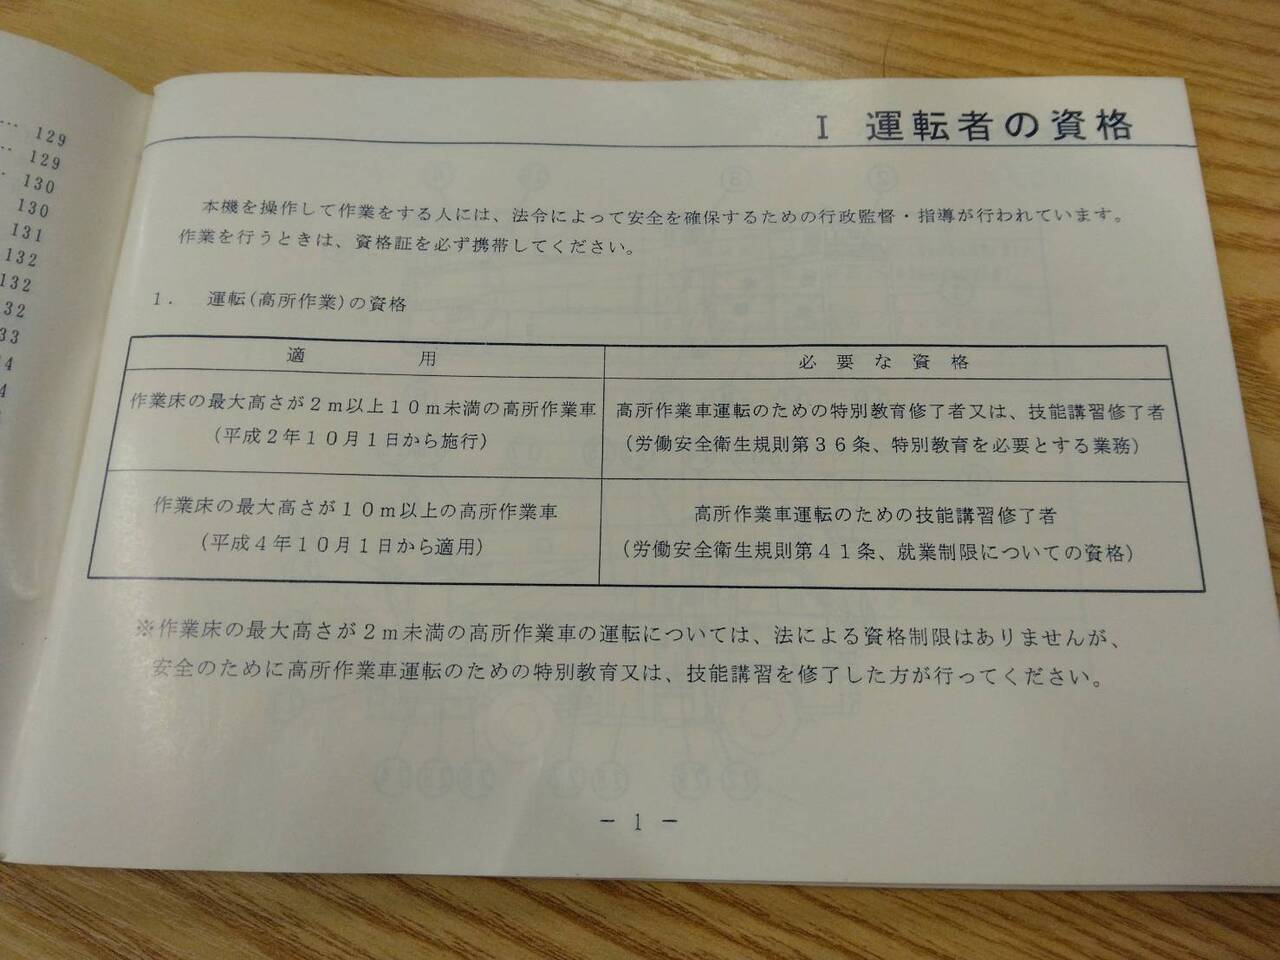 … 129
… 129
130
130
131
132
132
32
33
4
4
I 運転者の資格
本機を操作して作業をする人には、法令によって安全を確保するための行政監督・指導が行われています。
作業を行うときは、資格証を必ず携帯してください。
1. 運転(高所作業)の資格
適 用
必要な資格
作業床の最大高さが2m以上10m未満の高所作業車
(平成2年10月1日から施行)
高所作業車運転のための特別教育修了者又は、技能講習修了者
(労働安全衛生規則第36条、特別教育を必要とする業務)
作業床の最大高さが10m以上の高所作業車
(平成4年10月1日から適用)
高所作業車運転のための技能講習修了者
(労働安全衛生規則第41条、就業制限についての資格)
※作業床の最大高さが2m未満の高所作業車の運転については、法による資格制限はありませんが、
安全のために高所作業車運転のための特別教育又は、技能講習を修了した方が行ってください。
― 1 ―